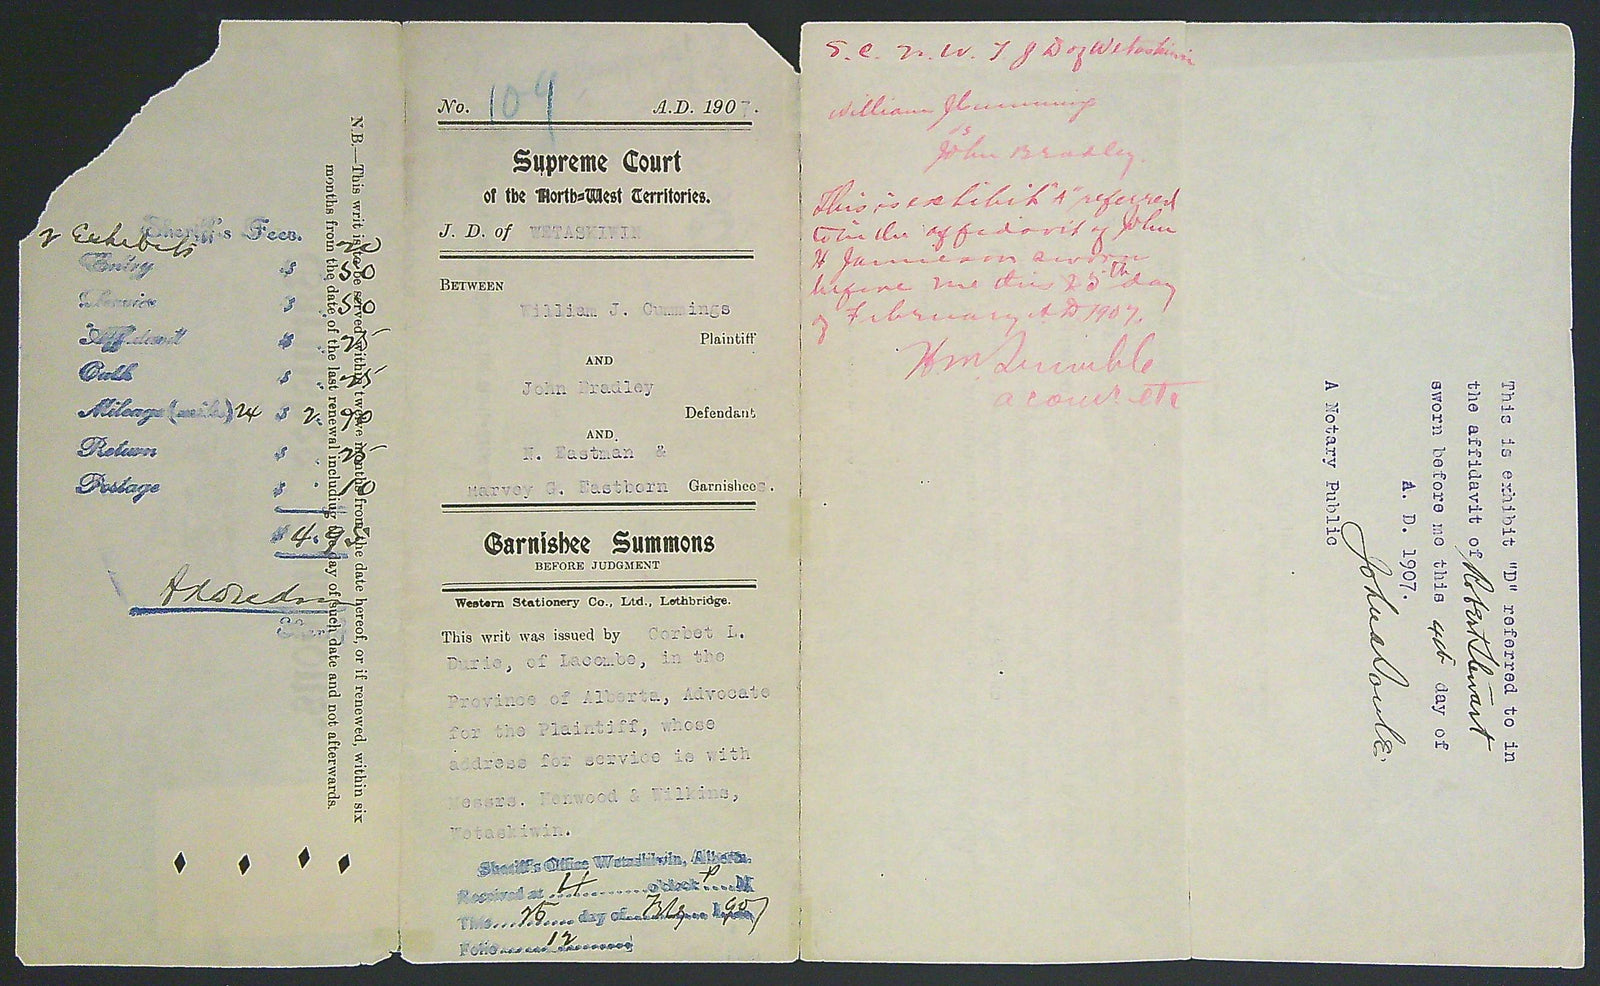 N.B.—This writ is to be served within twelve months from the date hereof, or if renewed, within six
months from the date of the last renewal including the day of such date and not afterwards.
Sheriff's Fees.
2 Exhibits 20
Entry $ 50
Service $ 50
Affidavit $ 25
Oath $ 25
Mileage (miles) 24 $ 2.90
Return $ 25
Postage $ 10
$ 4.95
No. 109 A.D. 1907.
Supreme Court
of the North-West Territories.
J. D. of WETASKIWIN
BETWEEN
William J. Cummings
Plaintiff
AND
John Bradley
Defendant
AND
N. Eastman &
Harvey G. Eastborn Garnishees.
Garnishee Summons
BEFORE JUDGMENT
Western Stationery Co., Ltd., Lethbridge.
This writ was issued by Corbet L.
Durie, of Lacombe, in the
Province of Alberta, Advocate
for the Plaintiff, whose
address for service is with
Messrs. Henwood & Wilkins,
Wetaskiwin.
Sheriff's Office Wetaskiwin, Alberta.
Received at 4 o'clock P M
This 25 day of Feby 1907
Folio 12
S. C. N. W. T. J D of Wetaskiwin
William J Cumming
vs
John Bradley.
This is exhibit "A" referred
to in the affidavit of John
H Jamieson sworn
before me this 25th day
of February A D 1907.
Wm Trimble
a comr etc
This is exhibit "D" referred to in
the affidavit of Robert Stewart
sworn before me this 4th day of
A. D. 1907.
A Notary Public